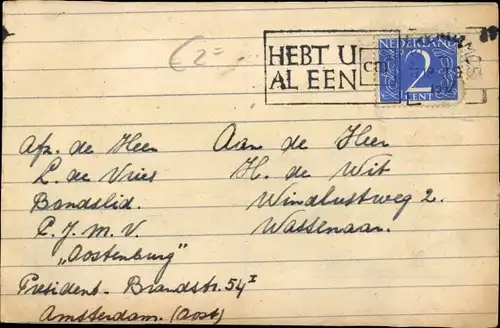 € 2=
HEBT U
AL EEN
NEDERLAND
2
CENT
Afz. de Heer
L. de Vries
Bondslid.
C.J.M.V.
"Oostenburg"
President-Brandstr. 54 I
Amsterdam. (Oost)
Aan de Heer
H. de Wit
Windlustweg 2.
Wassenaar.